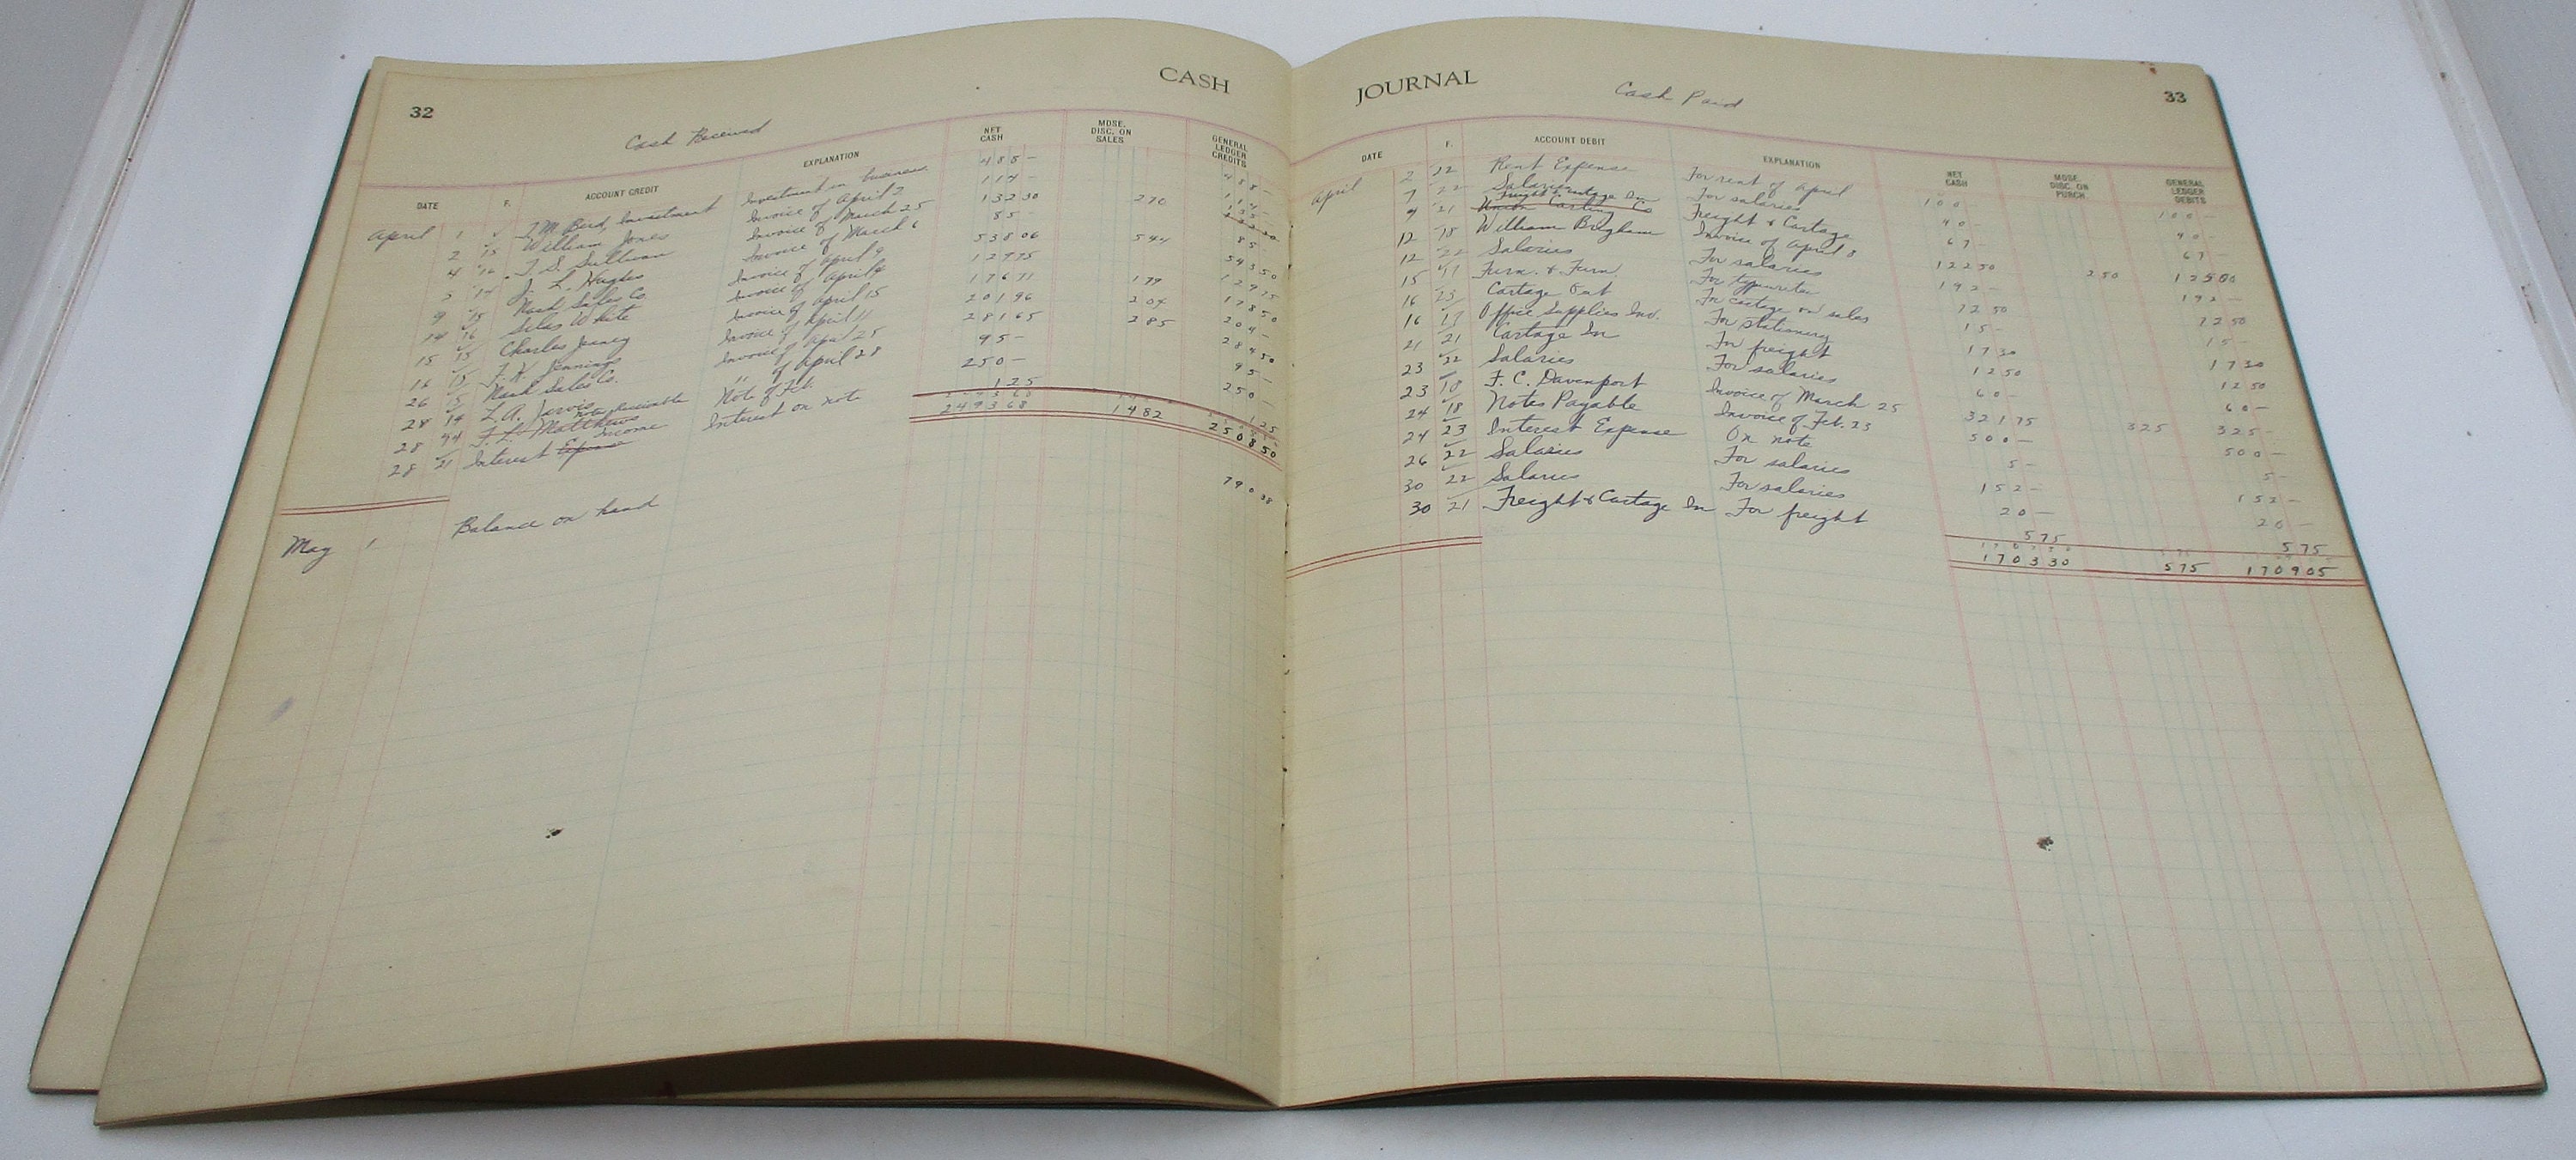 32
CASH
Cash Received
DATE F. ACCOUNT CREDIT EXPLANATION NET CASH MDSE. DISC. ON SALES GENERAL LEDGER CREDITS
April 1 ✓ Investment Investment in business 488 – 488 –
2 15 William Jones Invoice of April 2 114 – 114 –
4 16 T. D. Sullivan Invoice of March 25 132 30 2 70
5 14 J. L. Hughes Invoice of March 6 85 – 85 –
9 15 Nash Sales Co. Invoice of April 9 538 06 5 44 543 50
14 16 Silas White Invoice of April 129 75 129 75
15 15 Charles Janney Invoice of April 15 176 71 1 79 178 50
16 15 F. K. Jennings Invoice of April 11 201 96 2 04 204 –
26 15 Nash Sales Co. Invoice of April 25 281 65 2 85 284 50
28 14 L. A. Jarvis " of April 28 95 – 95 –
28 F. L. Matthews Notes Receivable Note of Feb. 250 – 250 –
28 21 Interest Expense Income Interest on note 1 25 1 25
2493 68 14 82 2508 50
May 1 Balance on hand 790 38
JOURNAL
33
Cash Paid
DATE F. ACCOUNT DEBIT EXPLANATION NET CASH MDSE. DISC. ON PURCH. GENERAL LEDGER DEBITS
April 2 22 Rent Expense For rent of April 100 – 100 –
7 22 Salaries For salaries 40 – 40 –
9 21 Union Carting Co Freight & Cartage In Freight & Cartage 67 – 67 –
12 18 William Brigham Invoice of April 8 122 50 2 50 125 00
12 22 Salaries For salaries 192 – 192 –
15 11 Furn. & Furn. For typewriter 72 50 72 50
16 23 Cartage Out For cartage on sales 15 – 15 –
16 17 Office Supplies Inv. For stationery 17 30 17 30
21 21 Cartage In For freight 12 50 12 50
23 22 Salaries For salaries 60 – 60 –
23 18 F. C. Davenport Invoice of March 25 321 75 3 25 325 –
24 18 Notes Payable Invoice of Feb. 23 500 – 500 –
24 23 Interest Expense On note 5 – 5 –
26 22 Salaries For salaries 152 – 152 –
30 22 Salaries For salaries 20 – 20 –
30 21 Freight & Cartage In For freight 5 75 5 75
1703 30 5 75 1709 05